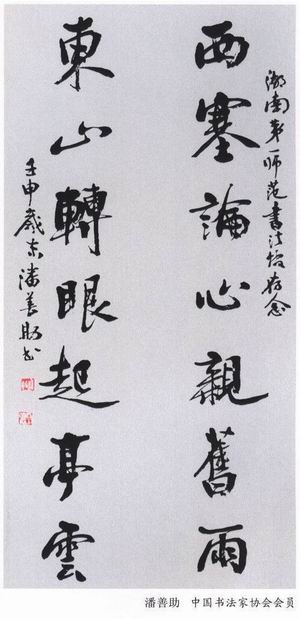 湖南第一师范书法校存念
西塞論心親舊雨
東山轉眼起亭雲
壬申歲末潘善助书
潘善助 中国书法家协会会员